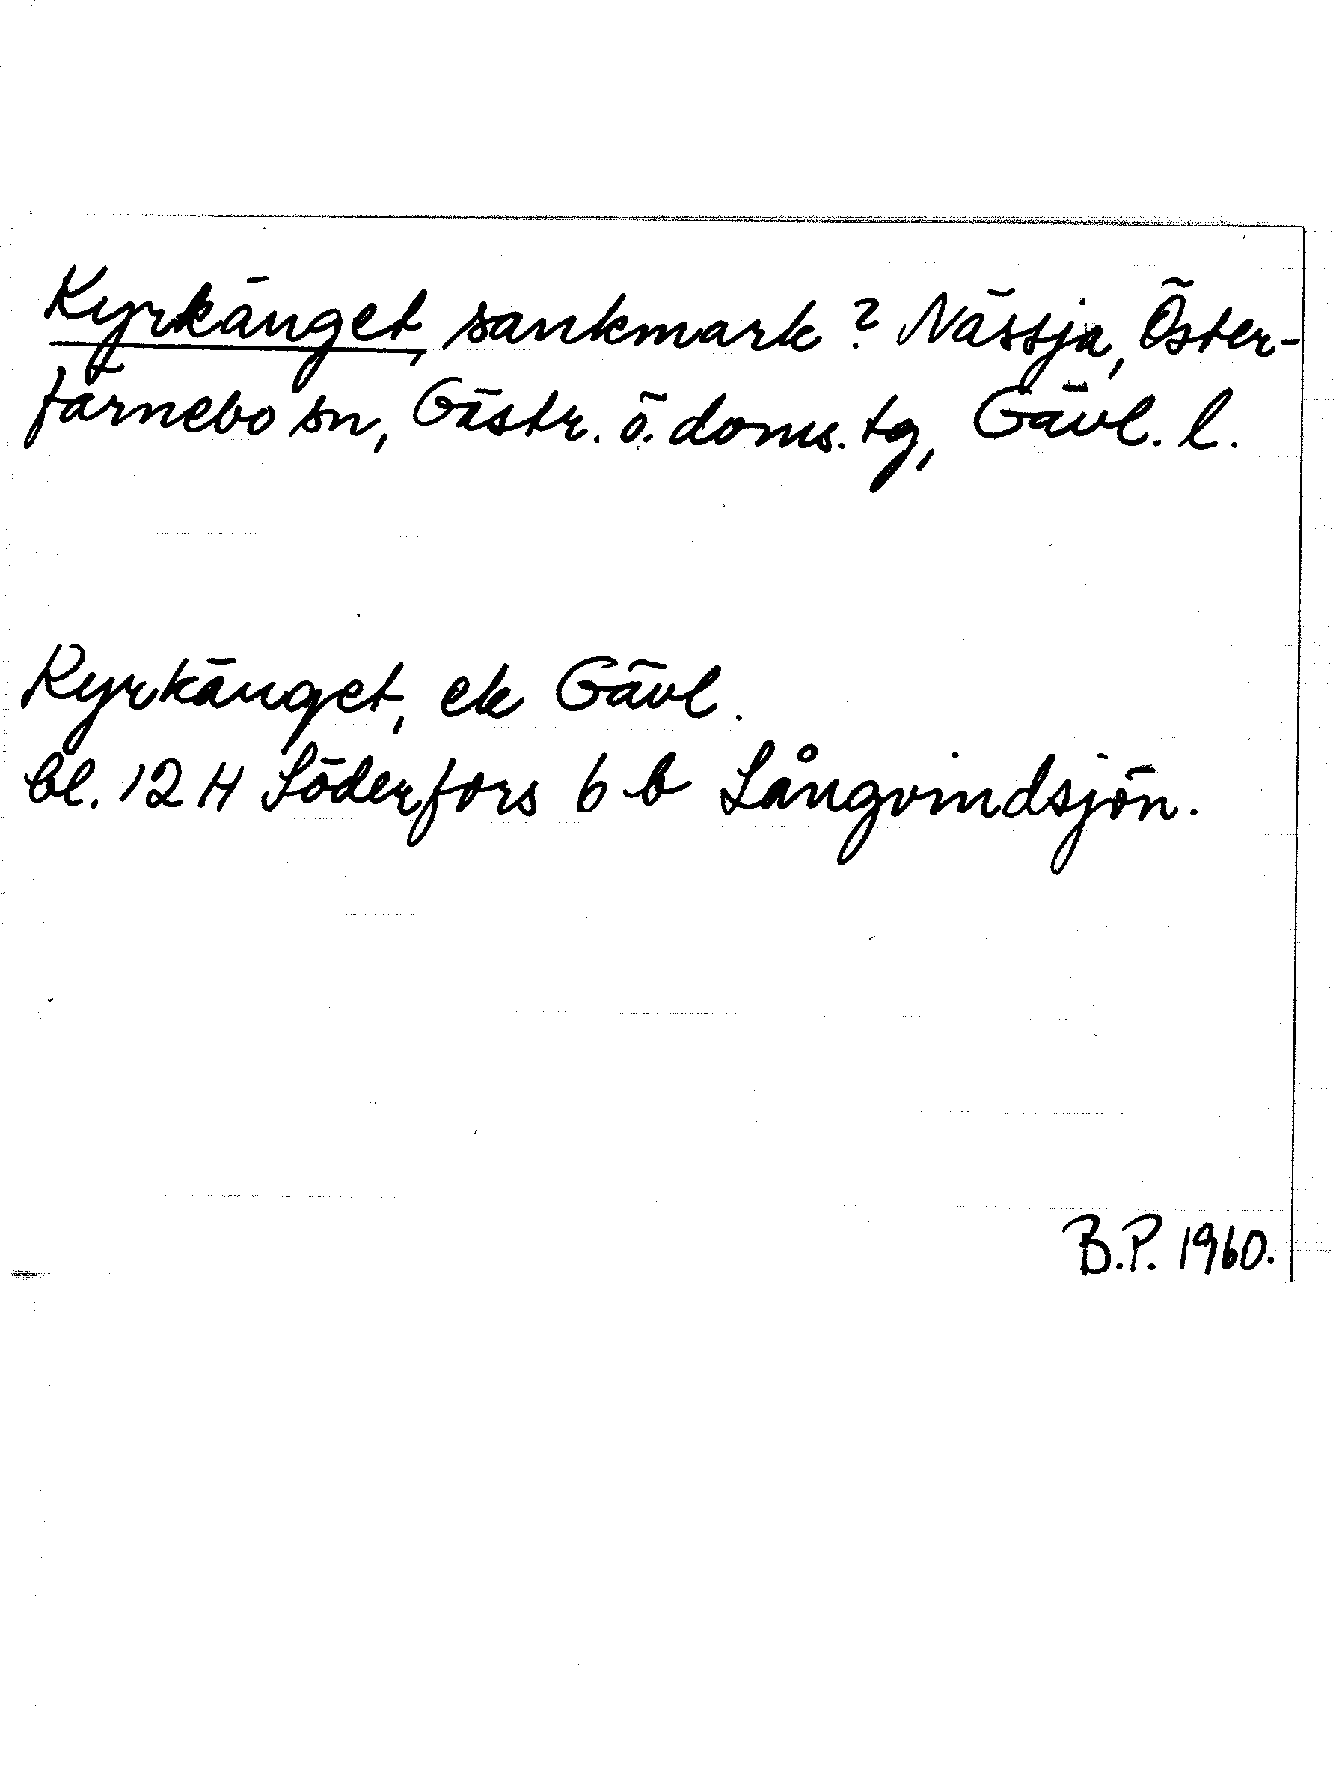 Kyrkänget, sankmark? Nässja, Öster-
färnebo sn, Gästr. ö. doms. tg, Gävl. l.
Kyrkänget, ek Gävl.
bl. 12 H Söderfors 6 b Långvindsjön.
B.P. 1960.